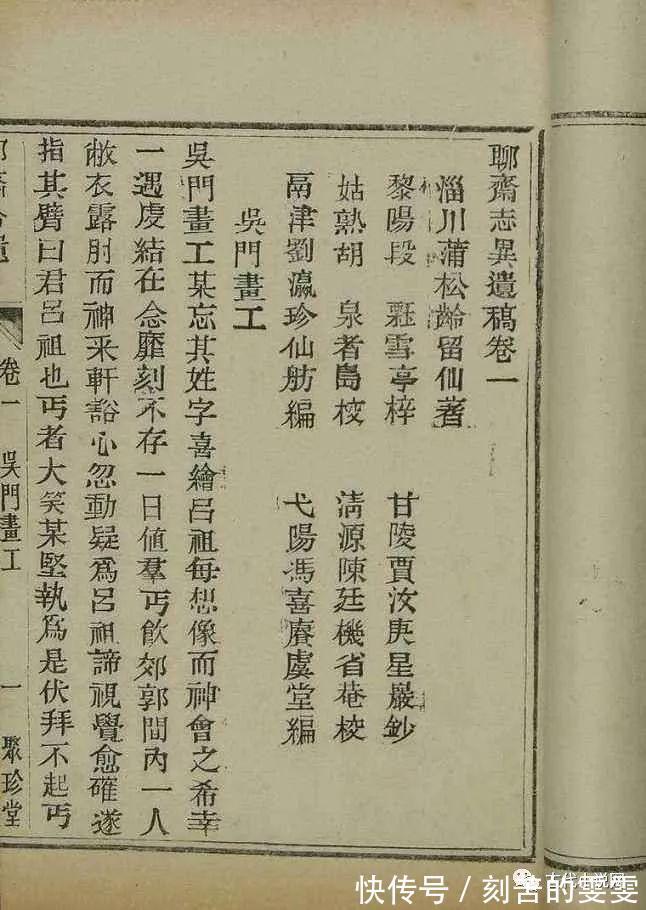 聊齋志異遺稿卷一
淄川蒲松齡留仙著
黎陽段　雪亭梓　甘陵賈汝庚星巖鈔
姑熟胡　泉者島校　淸源陳廷機省菴校
鬲津劉瀛珍仙舫編　弋陽馮喜賡虞堂編
吳門畫工
吳門畫工某忘其姓字喜繪呂祖每想像而神會之希幸
一遇虔結在念靡刻不存一日値羣丐飮郊郭間內一人
敝衣露肘而神采軒豁心忽動疑爲呂祖諦視覺愈確遂
指其臂曰君呂祖也丐者大笑某堅執爲是伏拜不起丐
卷一　吳門畫工　一　聚珍堂
古代小说网
快传号 / 刻舍的雯雯